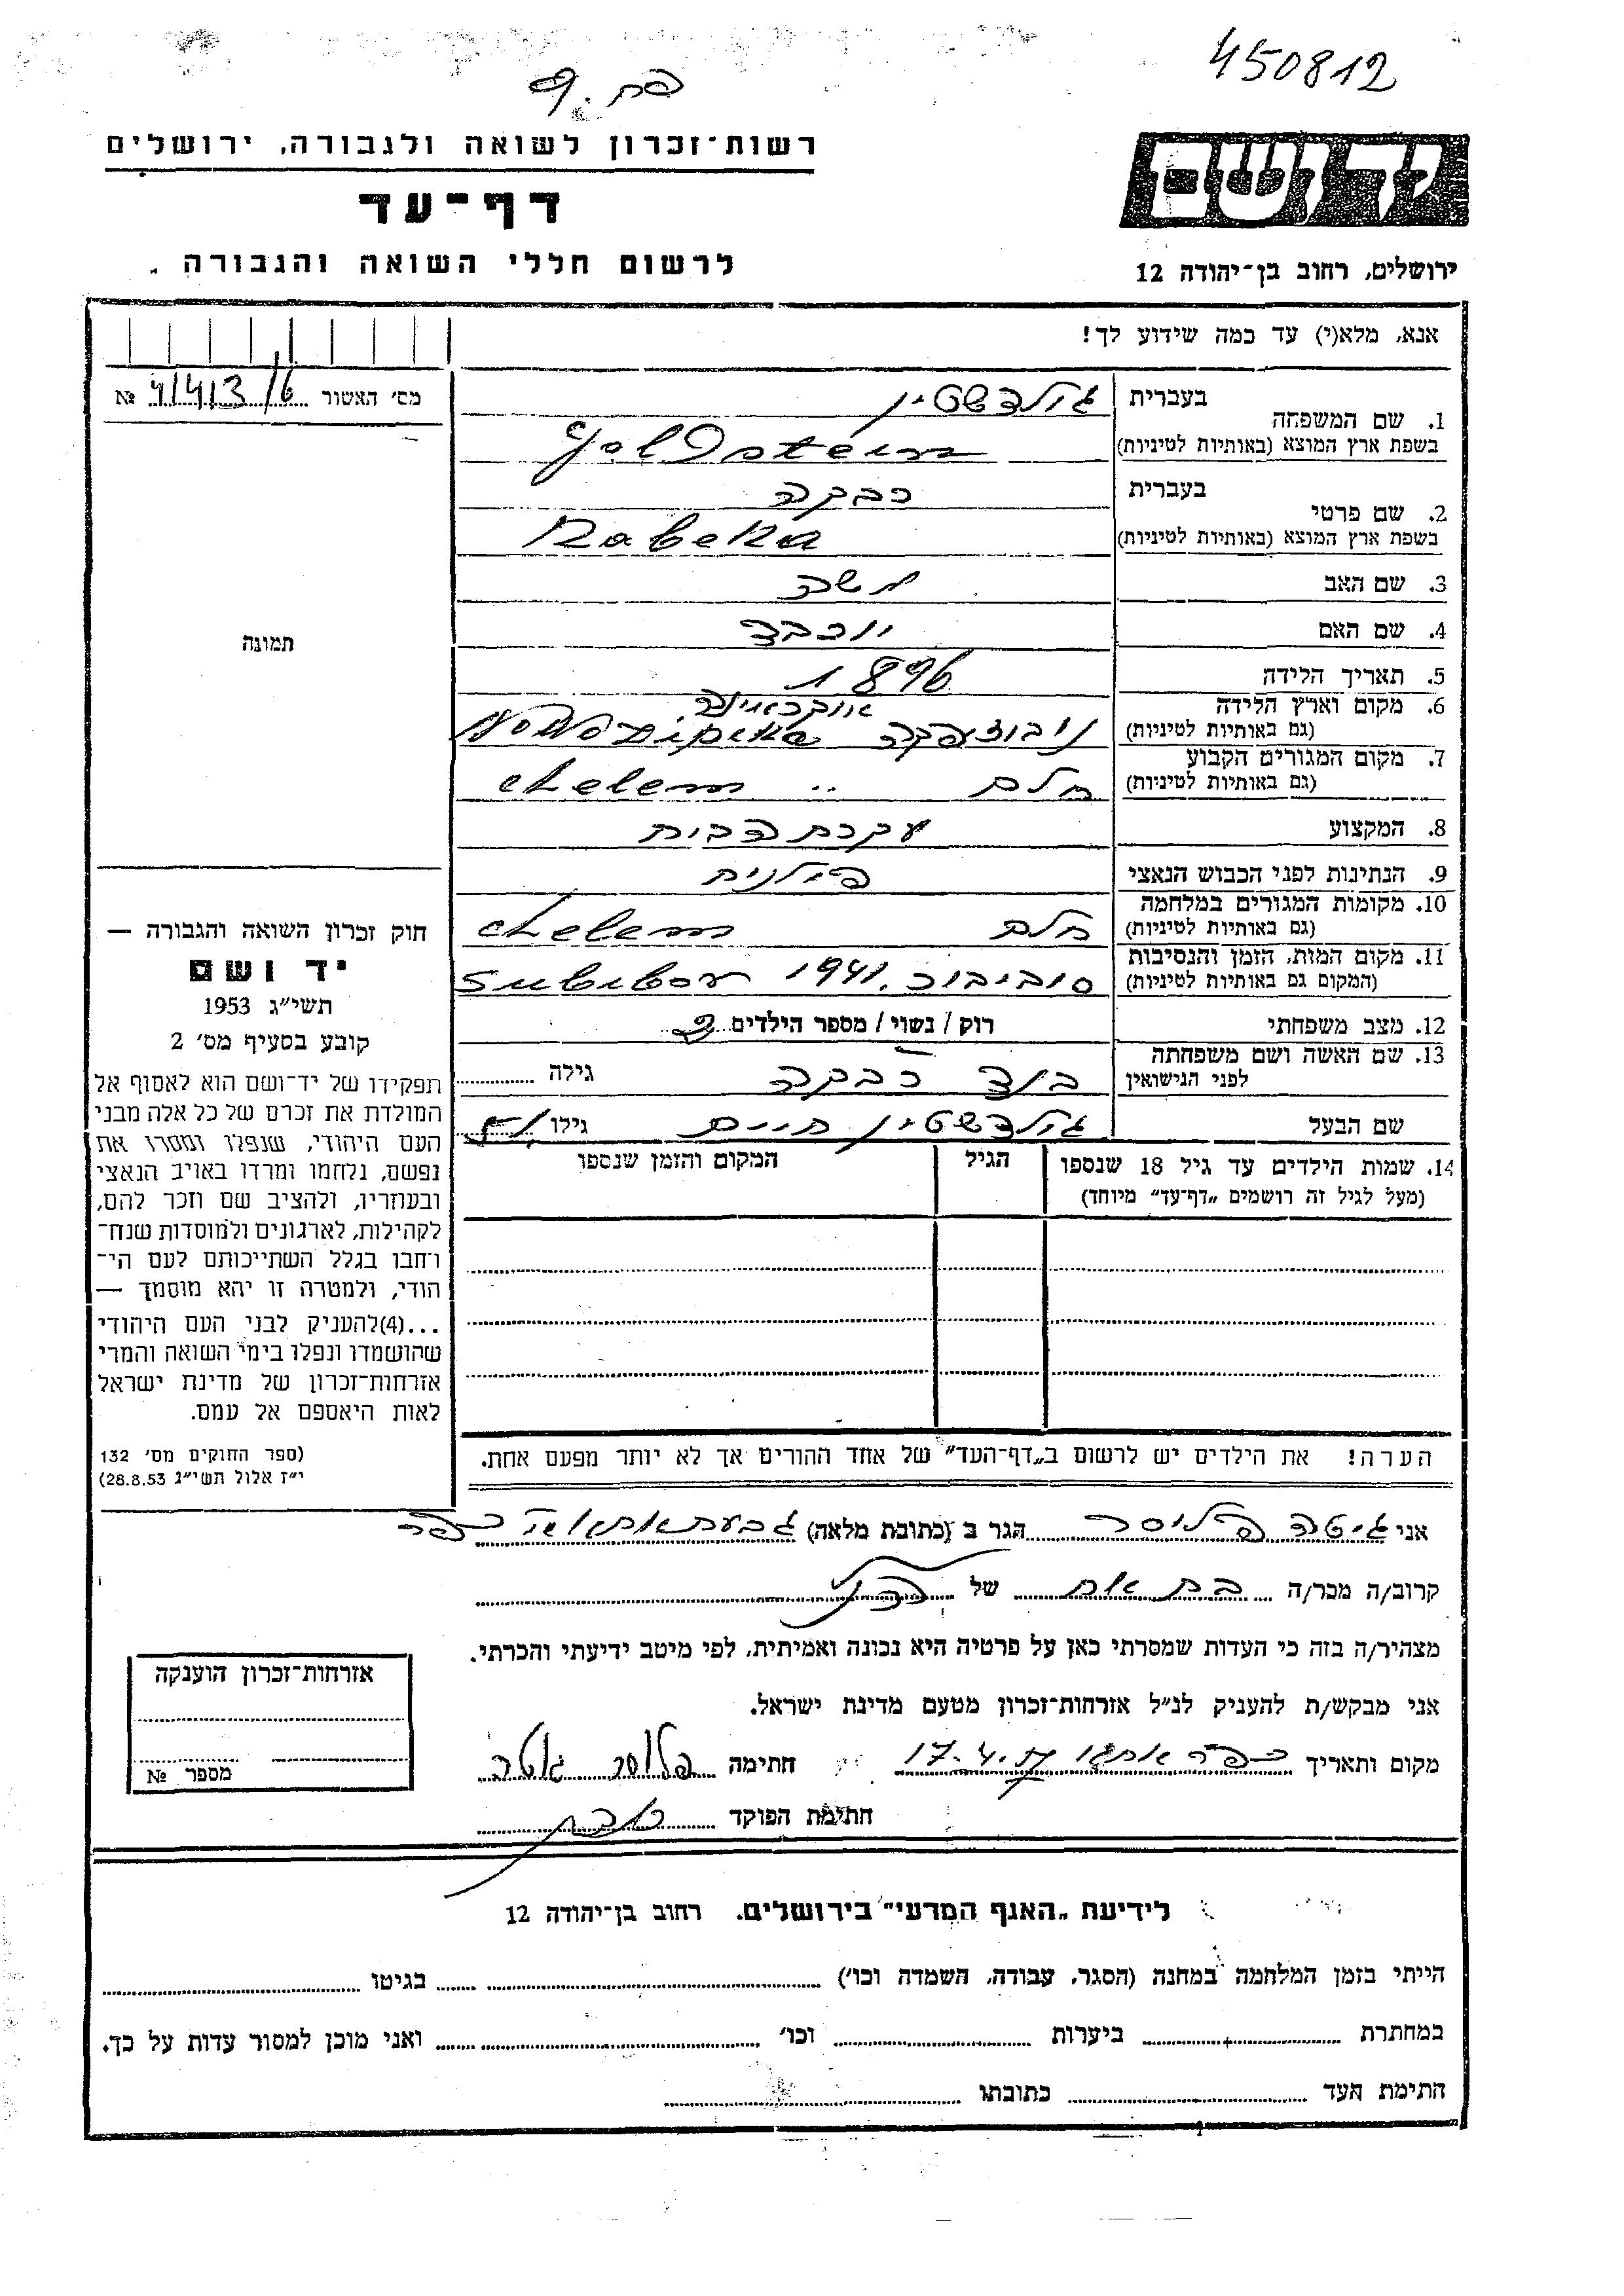 450812
רשות־זכרון לשואה ולגבורה, ירושלים
דף־עד
לרשום חללי השואה והגבורה
יד ושם
ירושלים, רחוב בן־יהודה 12
אנא, מלא(י) עד כמה שידוע לך!
מס׳ האשור 41413/6 №
1. שם המשפחה
בעברית גולדשטיין
בשפת ארץ המוצא (באותיות לטיניות) Goldstein
2. שם פרטי
בעברית רבקה
בשפת ארץ המוצא (באותיות לטיניות) Rabeka
3. שם האב משה
4. שם האם יוכבד
5. תאריך הלידה 1896
6. מקום וארץ הלידה אוקראינה
(גם באותיות לטיניות)
7. מקום המגורים הקבוע
(גם באותיות לטיניות) חלם Chelem
8. המקצוע עקרת הבית
9. הנתינות לפני הכבוש הנאצי פולנית
10. מקומות המגורים במלחמה
(גם באותיות לטיניות) חלם Chelem
11. מקום המות, הזמן והנסיבות
(המקום גם באותיות לטיניות) סוביבור 1941. Subibor
12. מצב משפחתי רוק / נשוי / מספר הילדים
13. שם האשה ושם משפחתה
לפני הנישואין רבקה גילה
שם הבעל גולדשטיין חיים גילו
14. שמות הילדים עד גיל 18 שנספו
(מעל לגיל זה רושמים „דף־עד״ מיוחד)
הגיל
המקום והזמן שנספו
הערה! את הילדים יש לרשום ב„דף־העד״ של אחד ההורים אך לא יותר מפעם אחת.
תמונה
חוק זכרון השואה והגבורה —
יד ושם
תשי״ג 1953
קובע בסעיף מס׳ 2
תפקידו של יד־ושם הוא לאסוף אל
המולדת את זכרם של כל אלה מבני
העם היהודי, שנפלו ומסרו את
נפשם, נלחמו ומרדו באויב הנאצי
ובעוזריו, ולהציב שם וזכר להם,
לקהילות, לארגונים ולמוסדות שנח־
רחבו בגלל השתייכותם לעם הי־
הודי, ולמטרה זו יהא מוסמך —
...(4)להעניק לבני העם היהודי
שהושמדו ונפלו בימי השואה והמרי
אזרחות־זכרון של מדינת ישראל
לאות היאספם אל עמם.
(ספר החוקים מס׳ 132
י״ז אלול תשי״ג 28.8.53)
אני גיטה פלוסר הגר ב (כתובת מלאה)
קרוב/ה מכר/ה בת אח של
מצהיר/ה בזה כי העדות שמסרתי כאן על פרטיה היא נכונה ואמיתית, לפי מיטב ידיעתי והכרתי.
אני מבקש/ת להעניק לנ״ל אזרחות־זכרון מטעם מדינת ישראל.
מקום ותאריך כפר אתא 17.4 חתימה פלוסר גיטה
חתימת הפוקד
אזרחות־זכרון הוענקה
מספר №
לידיעת „האגף המדעי״ בירושלים, רחוב בן־יהודה 12
הייתי בזמן המלחמה במחנה (הסגר, עבודה, השמדה וכו׳) בגיטו
במחתרת ביערות וכו׳ ואני מוכן למסור עדות על כך.
חתימת העד כתובתו